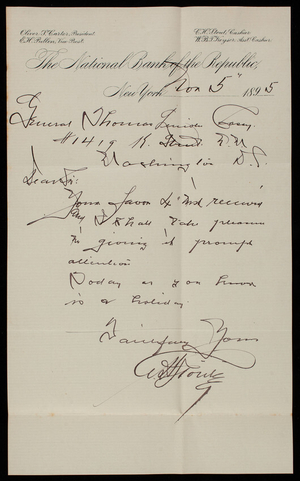 Oliver S. Carter, President
E.H. Pullen, Vice Prest.
C.H. Stout, Cashier
W.B.T. Keyser, Asst. Cashier
The National Bank of the Republic,
New York, Nov 5" 1895
General Thomas Lincoln Casey
#1419 K. Street N.W.
Washington D.C.
Dear Sir:
Your favor of received
and I shall take pleasure
in giving it prompt
attention
Today as you know
is a holiday.
Yours